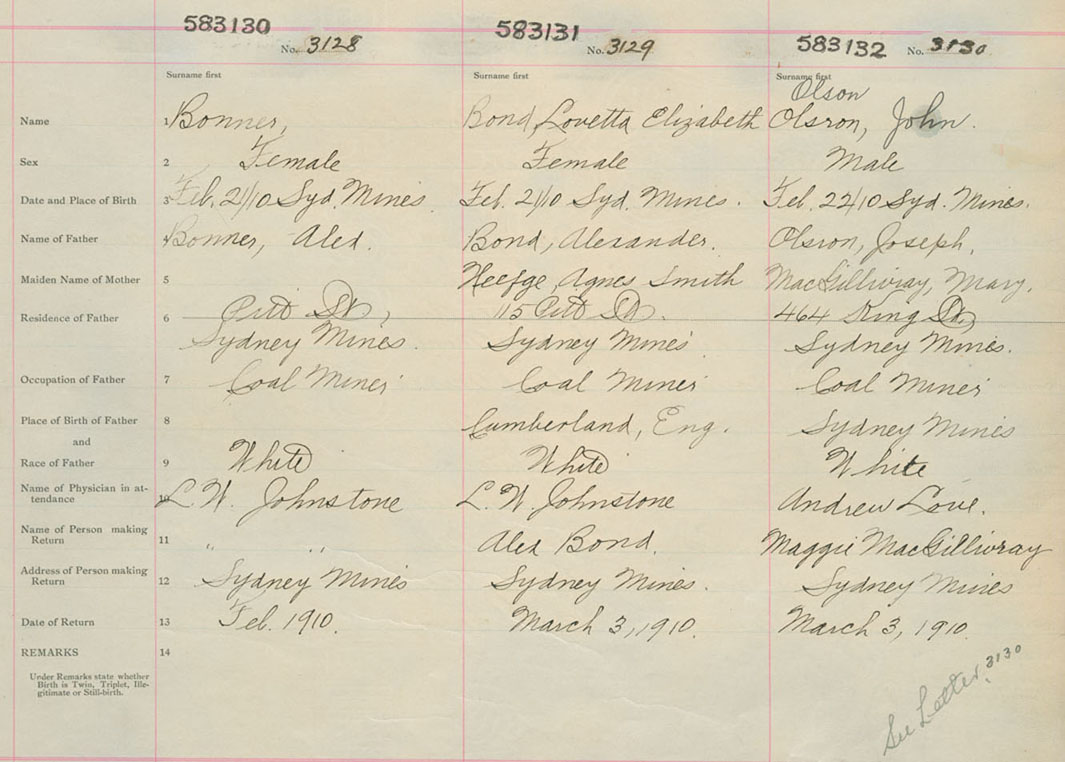 583130 No. 3128 583131 No. 3129 583132 No. 3130
Surname first Surname first Surname first
Olson
Name 1 Bonner, Bond, Lovetta Elizabeth Olsron, John.
Sex 2 Female Female Male
Date and Place of Birth 3 Feb. 21/10 Syd. Mines. Feb. 21/10 Syd. Mines. Feb. 22/10 Syd. Mines.
Name of Father 4 Bonner, Alex. Bond, Alexander. Olsron, Joseph,
Maiden Name of Mother 5 Agnes Smith MacGillivray, Mary.
Residence of Father 6 Pitt St, 115 Pitt St. 464 King St,
Sydney Mines. Sydney Mines. Sydney Mines.
Occupation of Father 7 Coal Miner Coal Miner Coal Miner
Place of Birth of Father 8 Cumberland, Eng. Sydney Mines
and
Race of Father 9 White White White
Name of Physician in at-
tendance 10 L. W. Johnstone L. W. Johnstone Andrew Love.
Name of Person making
Return 11 " " Alex Bond. Maggie MacGillivray
Address of Person making
Return 12 Sydney Mines Sydney Mines. Sydney Mines
Date of Return 13 Feb. 1910. March 3, 1910. March 3, 1910.
REMARKS 14
Under Remarks state whether
Birth is Twin, Triplet, Ille-
gitimate or Still-birth.
See Letter 3130